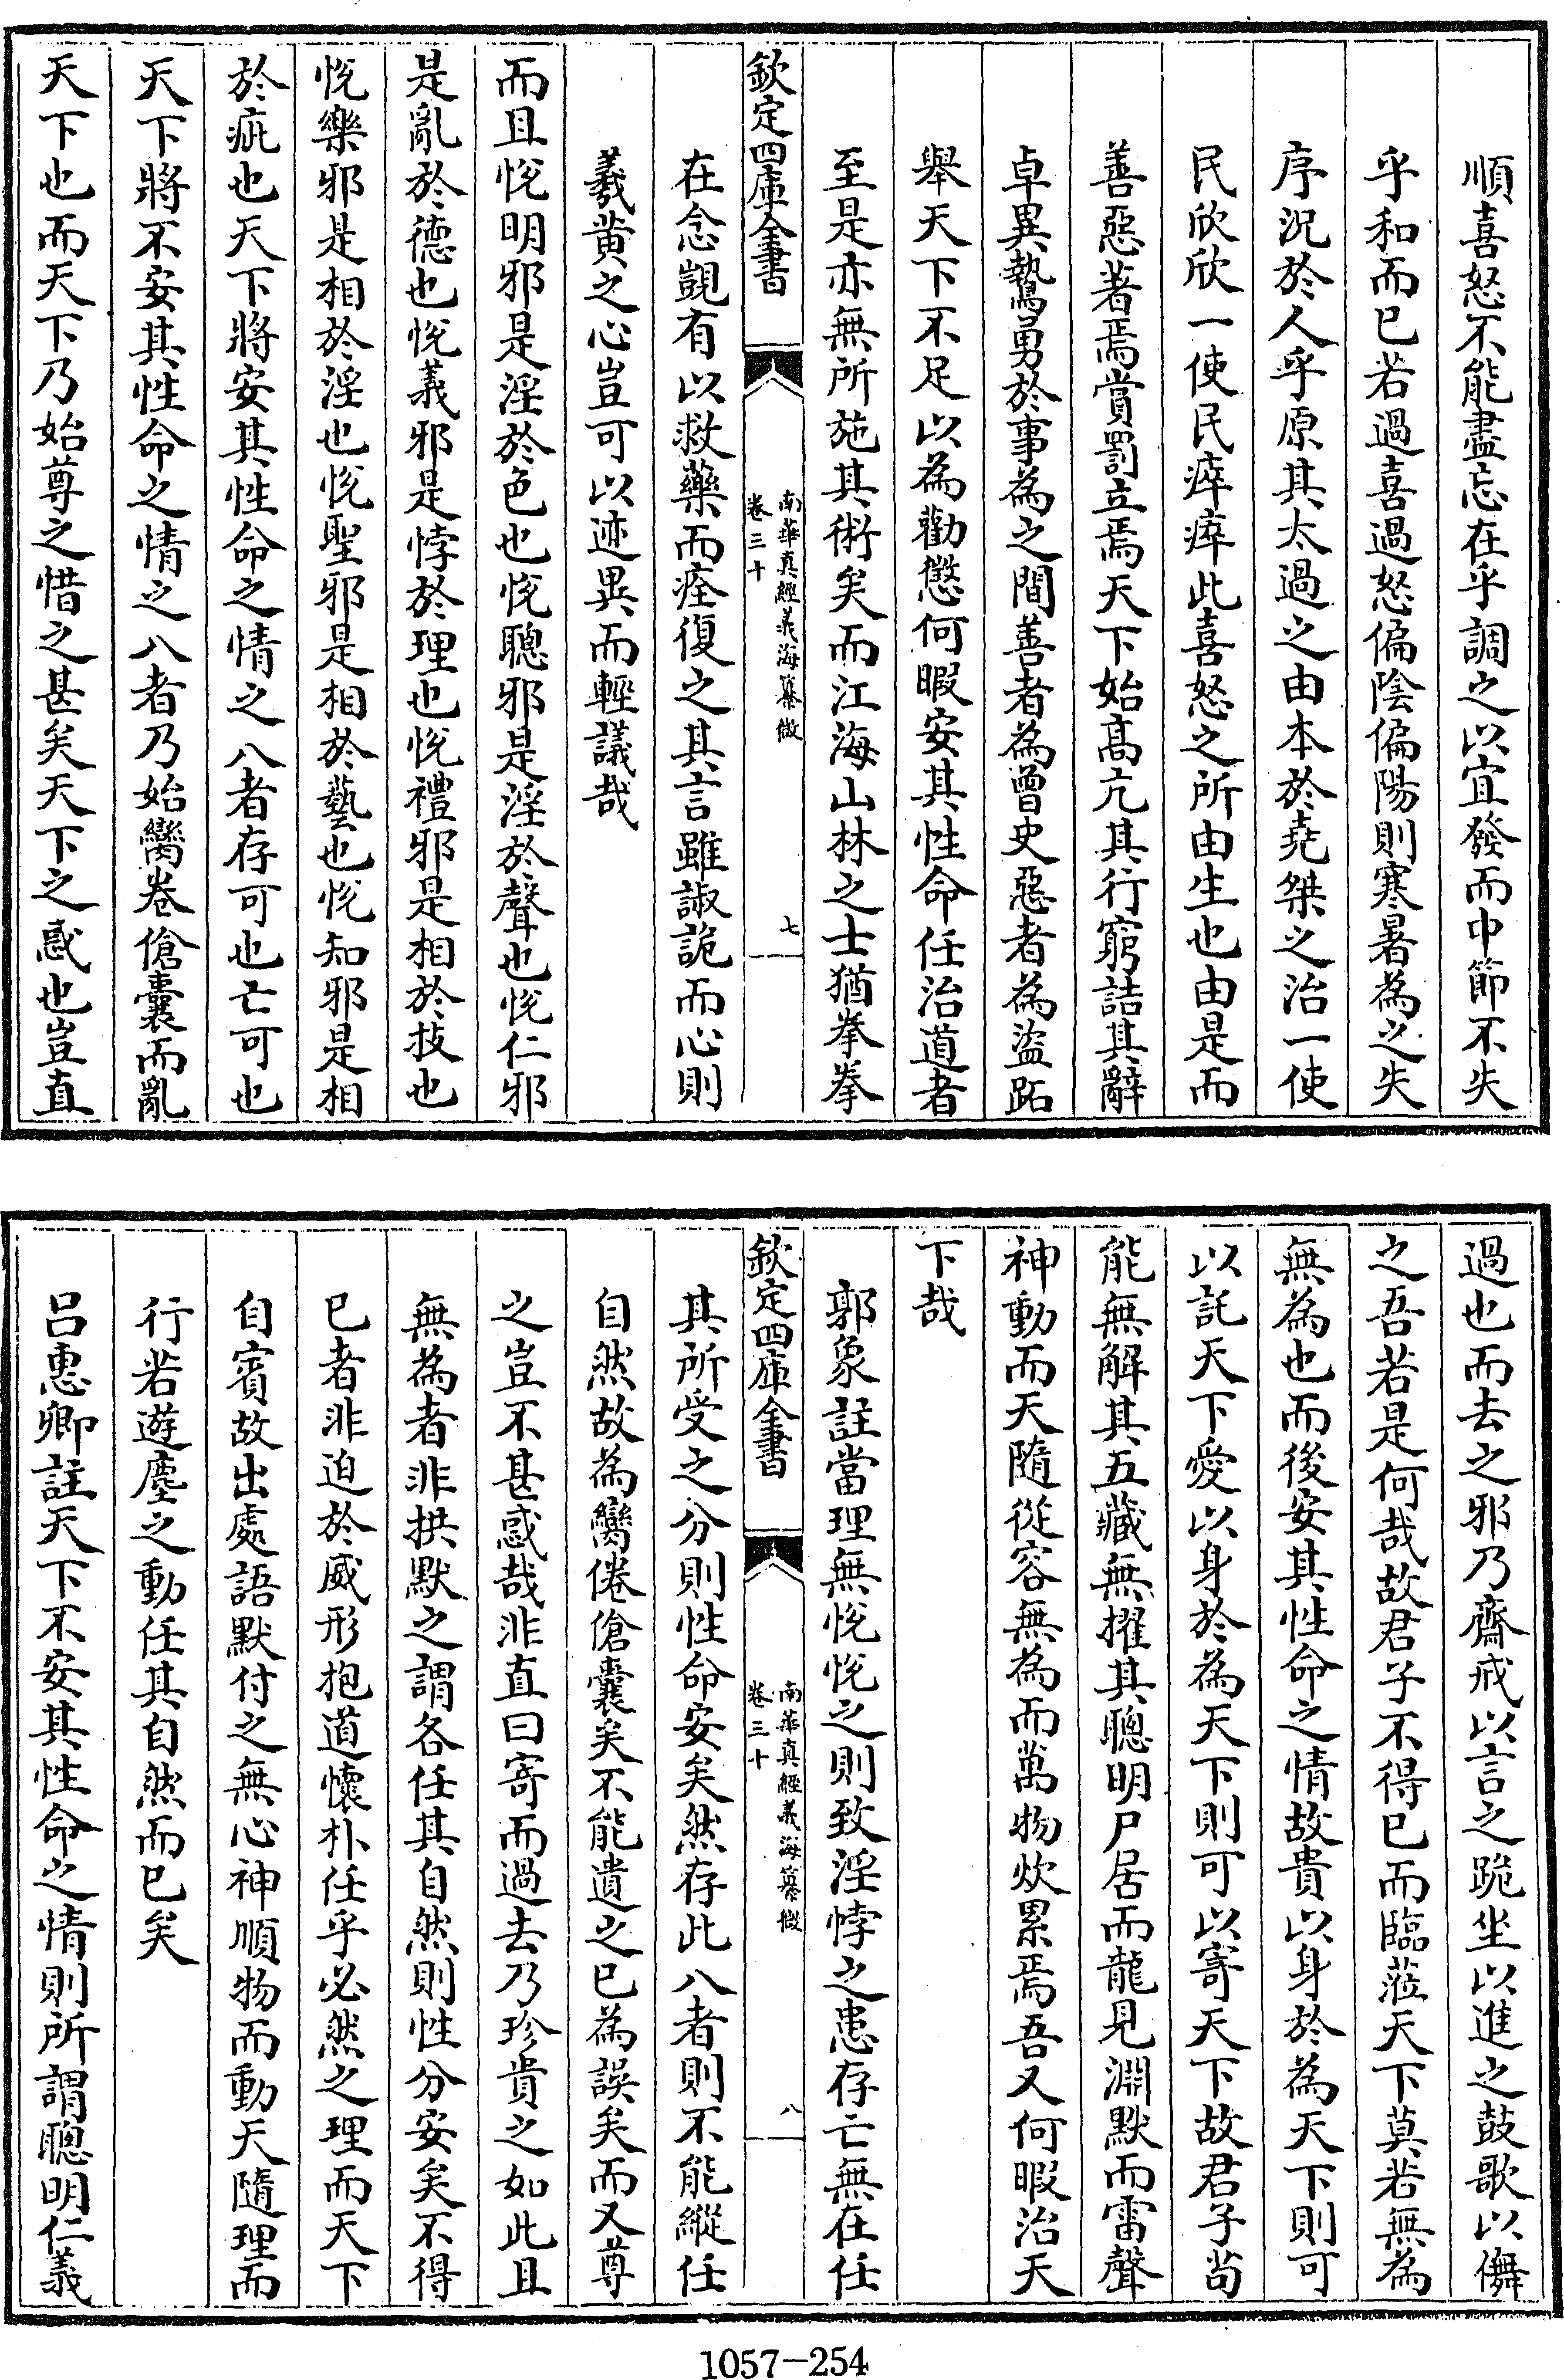 順喜怒不能盡忘在乎調之以宜發而中節不失
乎和而已若過喜過怒偏陰偏陽則寒暑為之失
序況於人乎原其太過之由本於堯桀之治一使
民欣欣一使民瘁瘁此喜怒之所由生也由是而
善惡著焉賞罰立焉天下始髙亢其行窮詰其辭
卓異鷙勇於事為之間善者為曾史惡者為盜跖
舉天下不足以為勸懲何暇安其性命任治道者
至是亦無所施其術矣而江海山林之士猶拳拳
欽定四庫全書
南華真經義海纂微
卷三十
七
在念覬有以救藥而痊復之其言雖諔詭而心則
羲黄之心豈可以迹異而輕議哉
而且悅明邪是淫於色也悅聰邪是淫於聲也悅仁邪
是亂於德也悅義邪是悖於理也悅禮邪是相於技也
悅樂邪是相於淫也悅聖邪是相於藝也悅知邪是相
於疵也天下將安其性命之情之八者存可也亡可也
天下將不安其性命之情之八者乃始臠卷傖囊而亂
天下也而天下乃始尊之惜之甚矣天下之惑也豈直
過也而去之邪乃齋戒以言之跪坐以進之鼓歌以儛
之吾若是何哉故君子不得已而臨蒞天下莫若無為
無為也而後安其性命之情故貴以身於為天下則可
以託天下愛以身於為天下則可以寄天下故君子苟
能無解其五藏無擢其聰明尸居而龍見淵默而雷聲
神動而天隨從容無為而萬物炊累焉吾又何暇治天
下哉
郭象註當理無悅悅之則致淫悖之患存亡無在任
欽定四庫全書
南華真經義海纂微
卷三十
八
其所受之分則性命安矣然存此八者則不能縱任
自然故為臠倦傖囊矣不能遺之已為誤矣而又尊
之豈不甚惑哉非直曰寄而過去乃珍貴之如此且
無為者非拱默之謂各任其自然則性分安矣不得
已者非迫於威形抱道懷朴任乎必然之理而天下
自賓故出處語默付之無心神順物而動天隨理而
行若遊塵之動任其自然而已矣
呂惠卿註天下不安其性命之情則所謂聰明仁義
1057-254